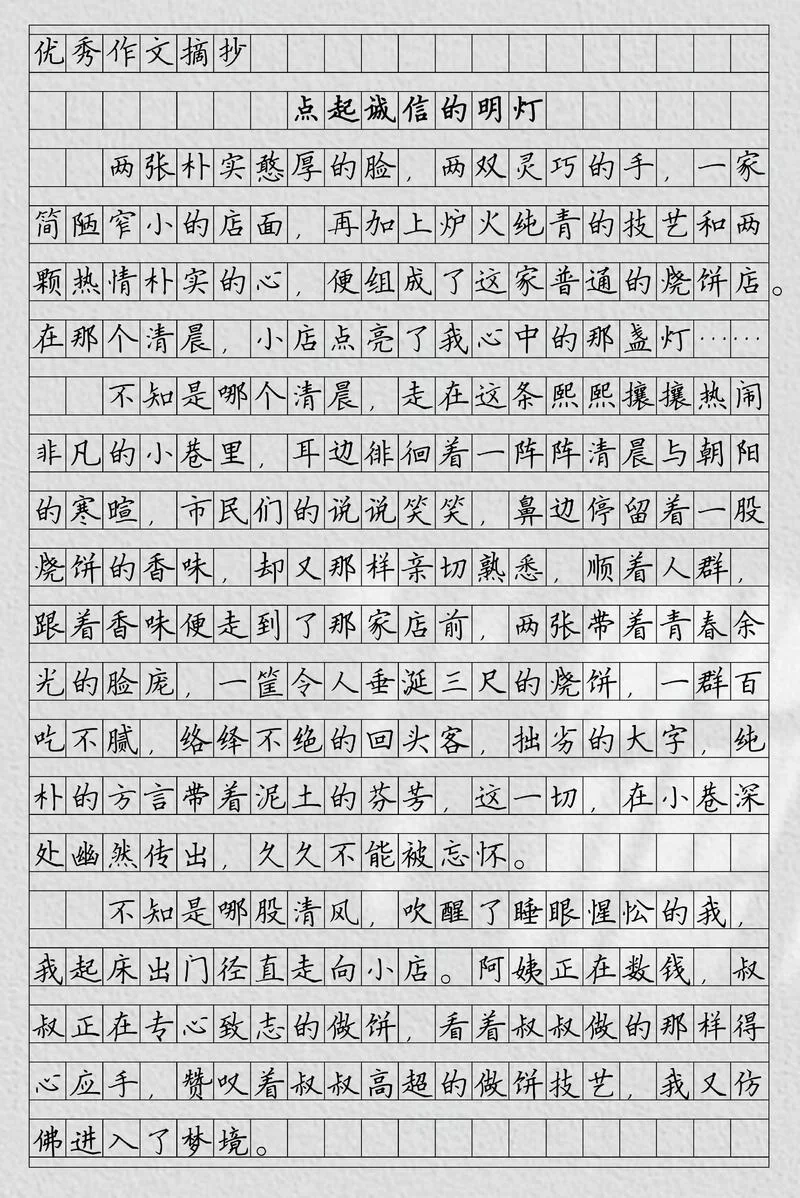 优秀作文摘抄
点起诚信的明灯
两张朴实憨厚的脸，两双灵巧的手，一家
简陋窄小的店面，再加上炉火纯青的技艺和两
颗热情朴实的心，便组成了这家普通的烧饼店。
在那个清晨，小店点亮了我心中的那盏灯……
不知是哪个清晨，走在这条熙熙攘攘热闹
非凡的小巷里，耳边徘徊着一阵阵清晨与朝阳
的寒暄，市民们的说说笑笑，鼻边停留着一股
烧饼的香味，却又那样亲切熟悉，顺着人群，
跟着香味便走到了那家店前，两张带着青春余
光的脸庞，一筐令人垂涎三尺的烧饼，一群百
吃不腻，络绎不绝的回头客，拙劣的大字，纯
朴的方言带着泥土的芬芳，这一切，在小巷深
处幽然传出，久久不能被忘怀。
不知是哪股清风，吹醒了睡眼惺忪的我，
我起床出门径直走向小店。阿姨正在数钱，叔
叔正在专心致志的做饼，看着叔叔做的那样得
心应手，赞叹着叔叔高超的做饼技艺，我又仿
佛进入了梦境。